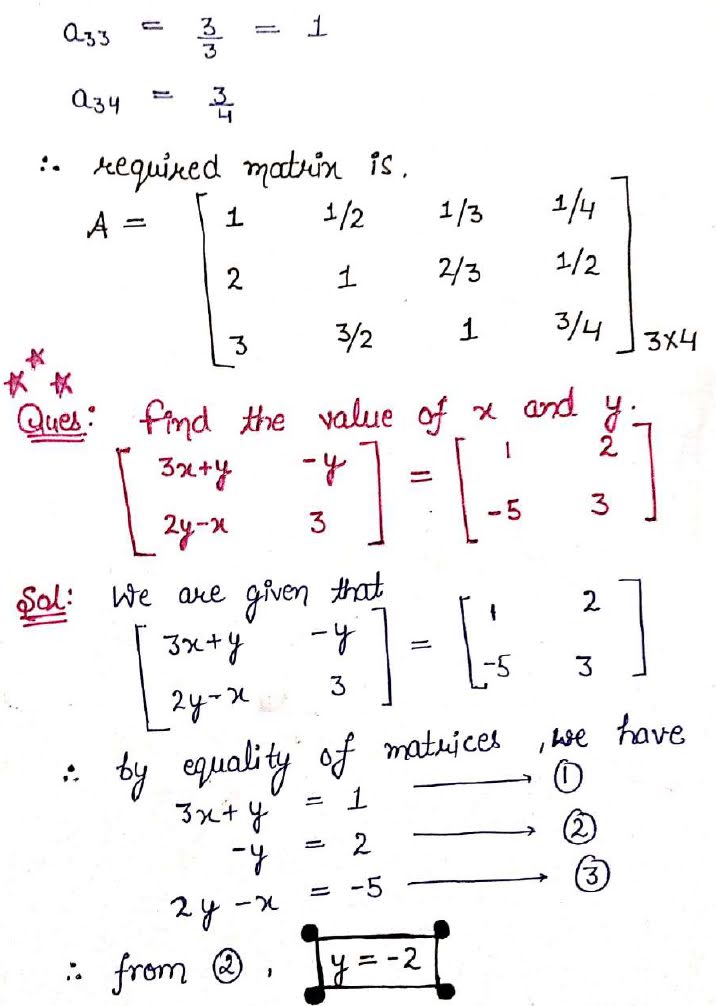 a₃₃ = 3/3 = 1
a₃₄ = 3/4
∴ required matrix is.
A = [ 1 1/2 1/3 1/4
2 1 2/3 1/2
3 3/2 1 3/4 ] 3×4
Ques: find the value of x and y.
[ 3x+y -y ] = [ 1 2 ]
[ 2y-x 3 ] [ -5 3 ]
Sol: We are given that
[ 3x+y -y ] = [ 1 2 ]
[ 2y-x 3 ] [ -5 3 ]
∴ by equality of matrices, we have
3x+y = 1 ⟶ ①
-y = 2 ⟶ ②
2y-x = -5 ⟶ ③
∴ from ②, y = -2